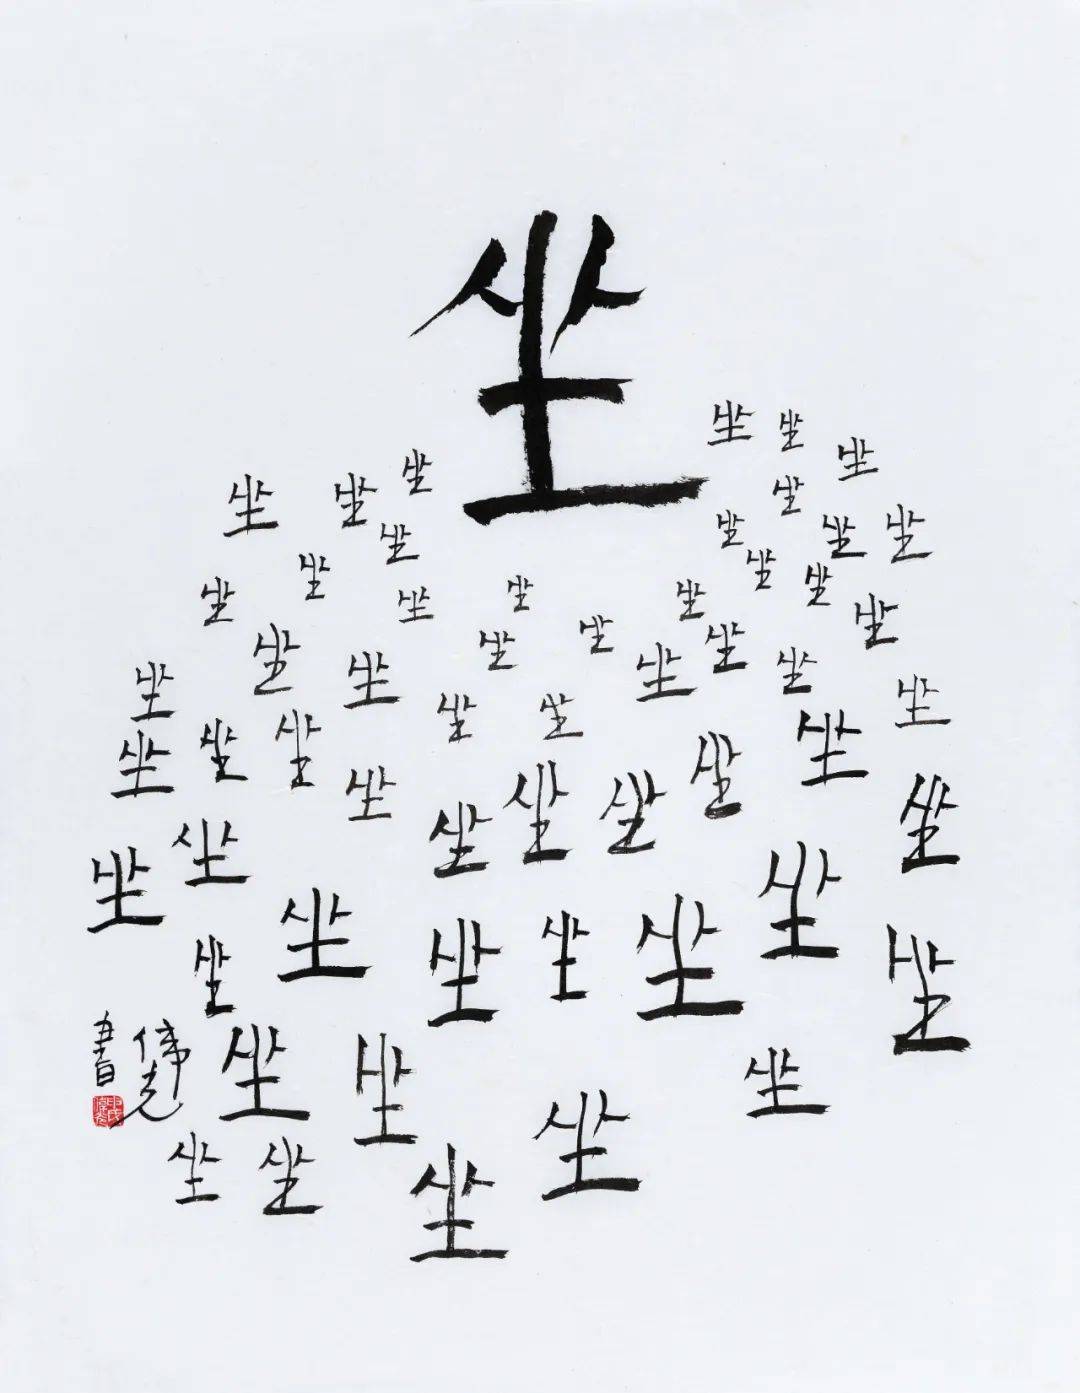 坐
坐 坐 坐
坐 坐 坐 坐
坐 坐 坐 坐
坐 坐 坐
坐 坐 坐 坐 坐
坐 坐 坐
坐 坐 坐 坐
坐 坐 坐 坐
坐 坐 坐 坐
坐 坐 坐 坐 坐
坐 坐 坐
坐 坐 坐 坐 坐
坐 坐
坐 坐 坐
坐 坐 坐 坐
偉光
書
申氏偉光